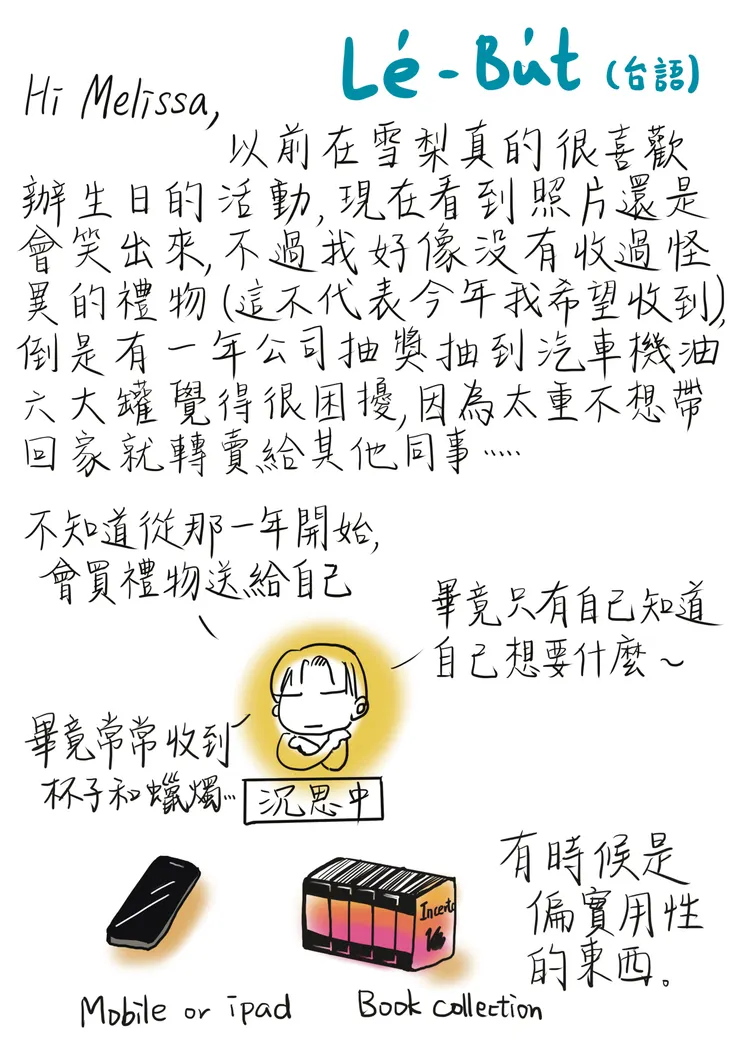 Lé-Bu̍t (台語)
Hi Melissa,
以前在雪梨真的很喜歡
辦生日的活動,現在看到照片還是
會笑出來,不過我好像沒有收過怪
異的禮物(這不代表今年我希望收到),
倒是有一年公司抽獎抽到汽車機油
六大罐覺得很困擾,因為太重不想帶
回家就轉賣給其他同事.....
不知道從那一年開始,
會買禮物送給自己
畢竟只有自己知道
自己想要什麼~
畢竟常常收到
杯子和蠟燭...
沉思中
有時候是
偏實用性
的東西。
Incerto
Mobile or ipad
Book collection